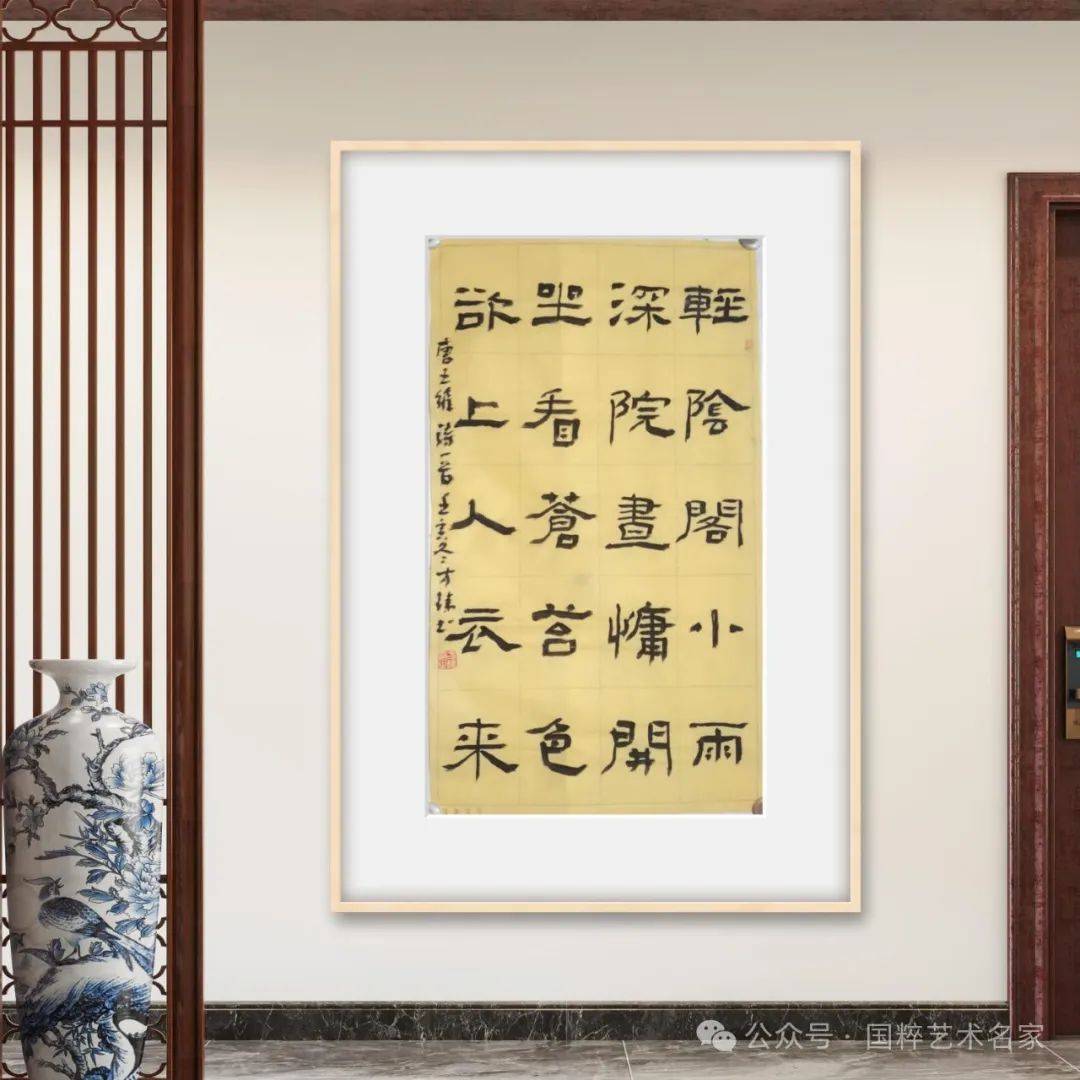 輕陰閣小雨
深院晝慵開
坐看蒼苔色
欲上人衣来
唐王維詩一首壬寅冬
公众号·国粹艺术名家